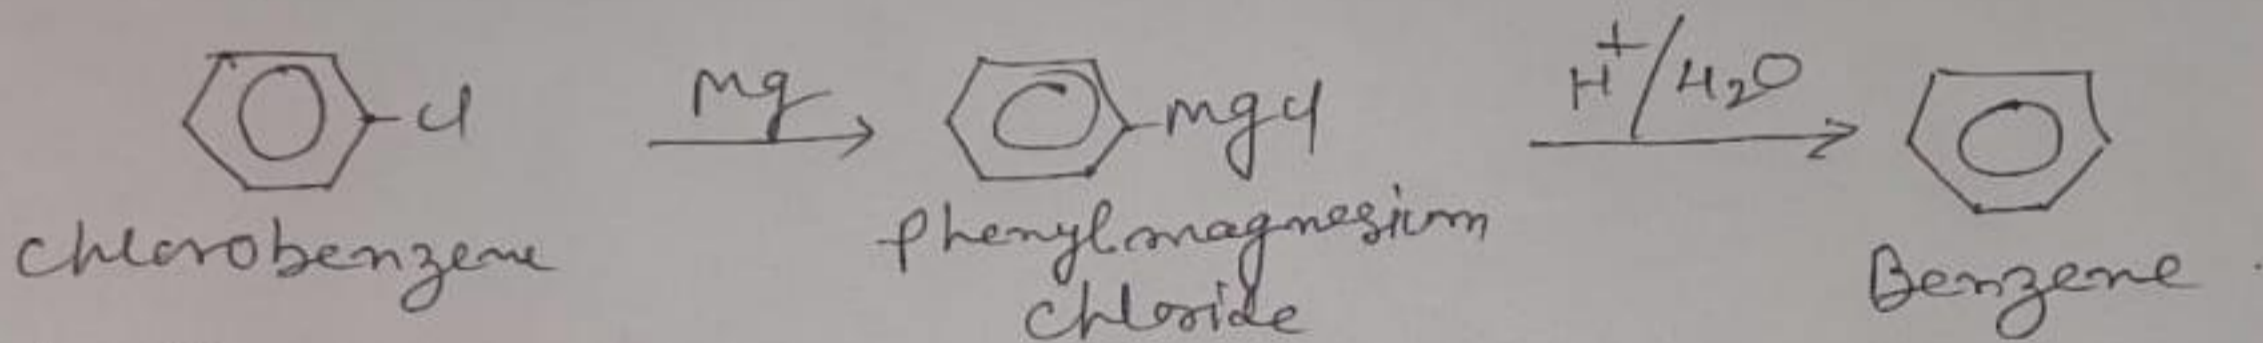 Cl
Mg
MgCl
H+/H2O
Chlorobenzene
Phenylmagnesium
Chloride
Benzene